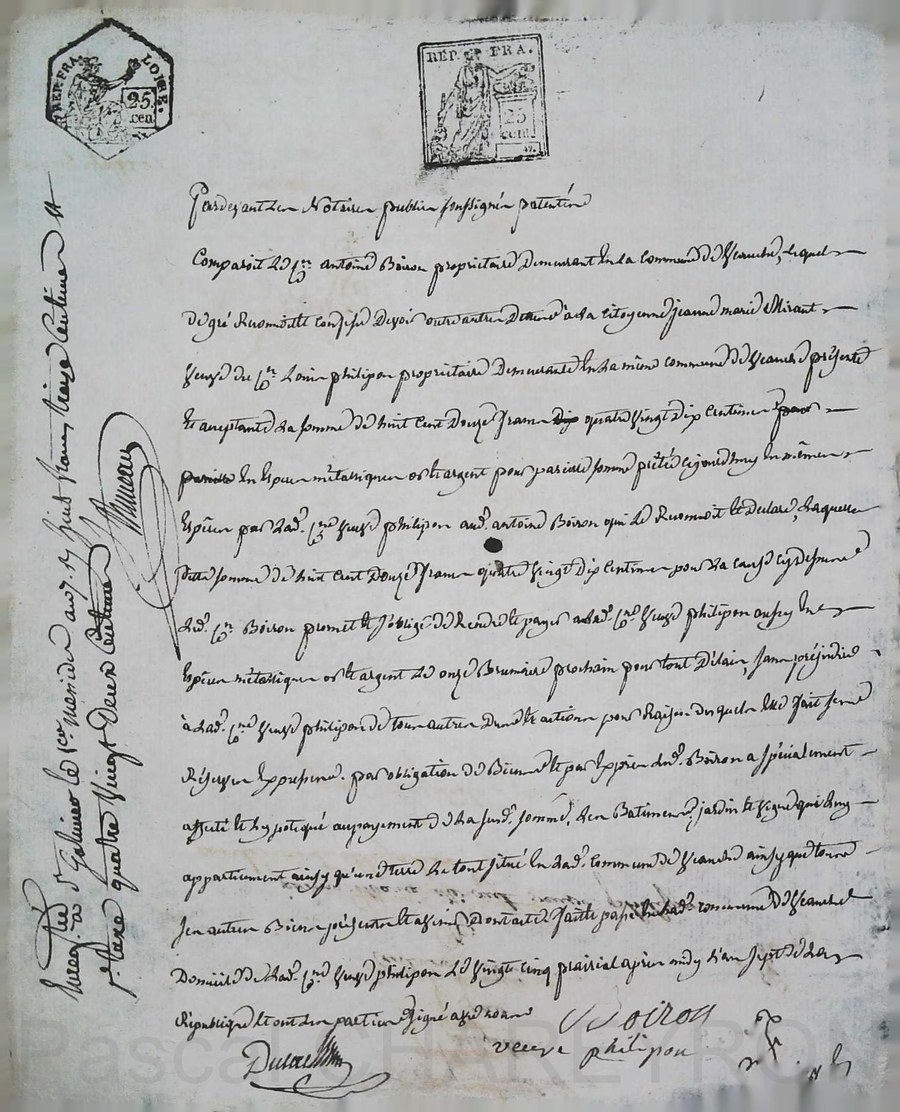 REP. FRA. LOIRE.
25. cen.
REP. FRA.
25 cent.
Pardevant les Notaires publics soussignés patentés
Comparoit le Cen. antoine Boiron propriétaire demeurant en la commune de Veauche, lequel
de gré Reconnoit et confesse devoir outre autre dettes à la citoyenne jeanne marie Mirant
veuve du Cen. Louis philipon propriétaire demeurante en la même commune de Veauche présente
et acceptante la somme de huit cent douze francs quatre vingt dix centimes
en espèces métalliques or et argent pour pareille somme prêtée cejourd'huy en mêmes
espèces par lad. Cne. veuve philipon aud. antoine Boiron qui le Reconnoit et déclare, laquelle
ditte somme de huit cent douze francs quatre vingt dix centimes pour la cause cydessus
led. Cn. Boiron promet et s'oblige de rendre et payer à lad. Cne. veuve philipon aussy en
espèces métalliques or et argent le onze Brumaire prochain pour tout délais, sans préjudice
à lad. Cne. veuve philipon de tous autres dus et actions pour raison desquels elle fait
Réserves expresses. par obligation de Biens et par exprès led. Boiron a spécialement
affecté et hypotequé au payement de la susd. somme, les Batimens, jardin et vigne qui luy
appartiennent ainsy qu'une terre le tout situé en lad. commune de Veauche ainsy que tous
ses autres Biens présents et avenir, Dont acte fait et passé en lad. commune de Veauche
Domicile de lad. Cne. veuve philipon le vingt cinq prairial après midy l'an sept de la
République et ont les parties signé avec nous
Boiron
veuve philipon
Enregistré à St Galmier le 1er messidor an 7. Rç huit francs treize centimes et
Sr. taxe quatre vingt deux centimes